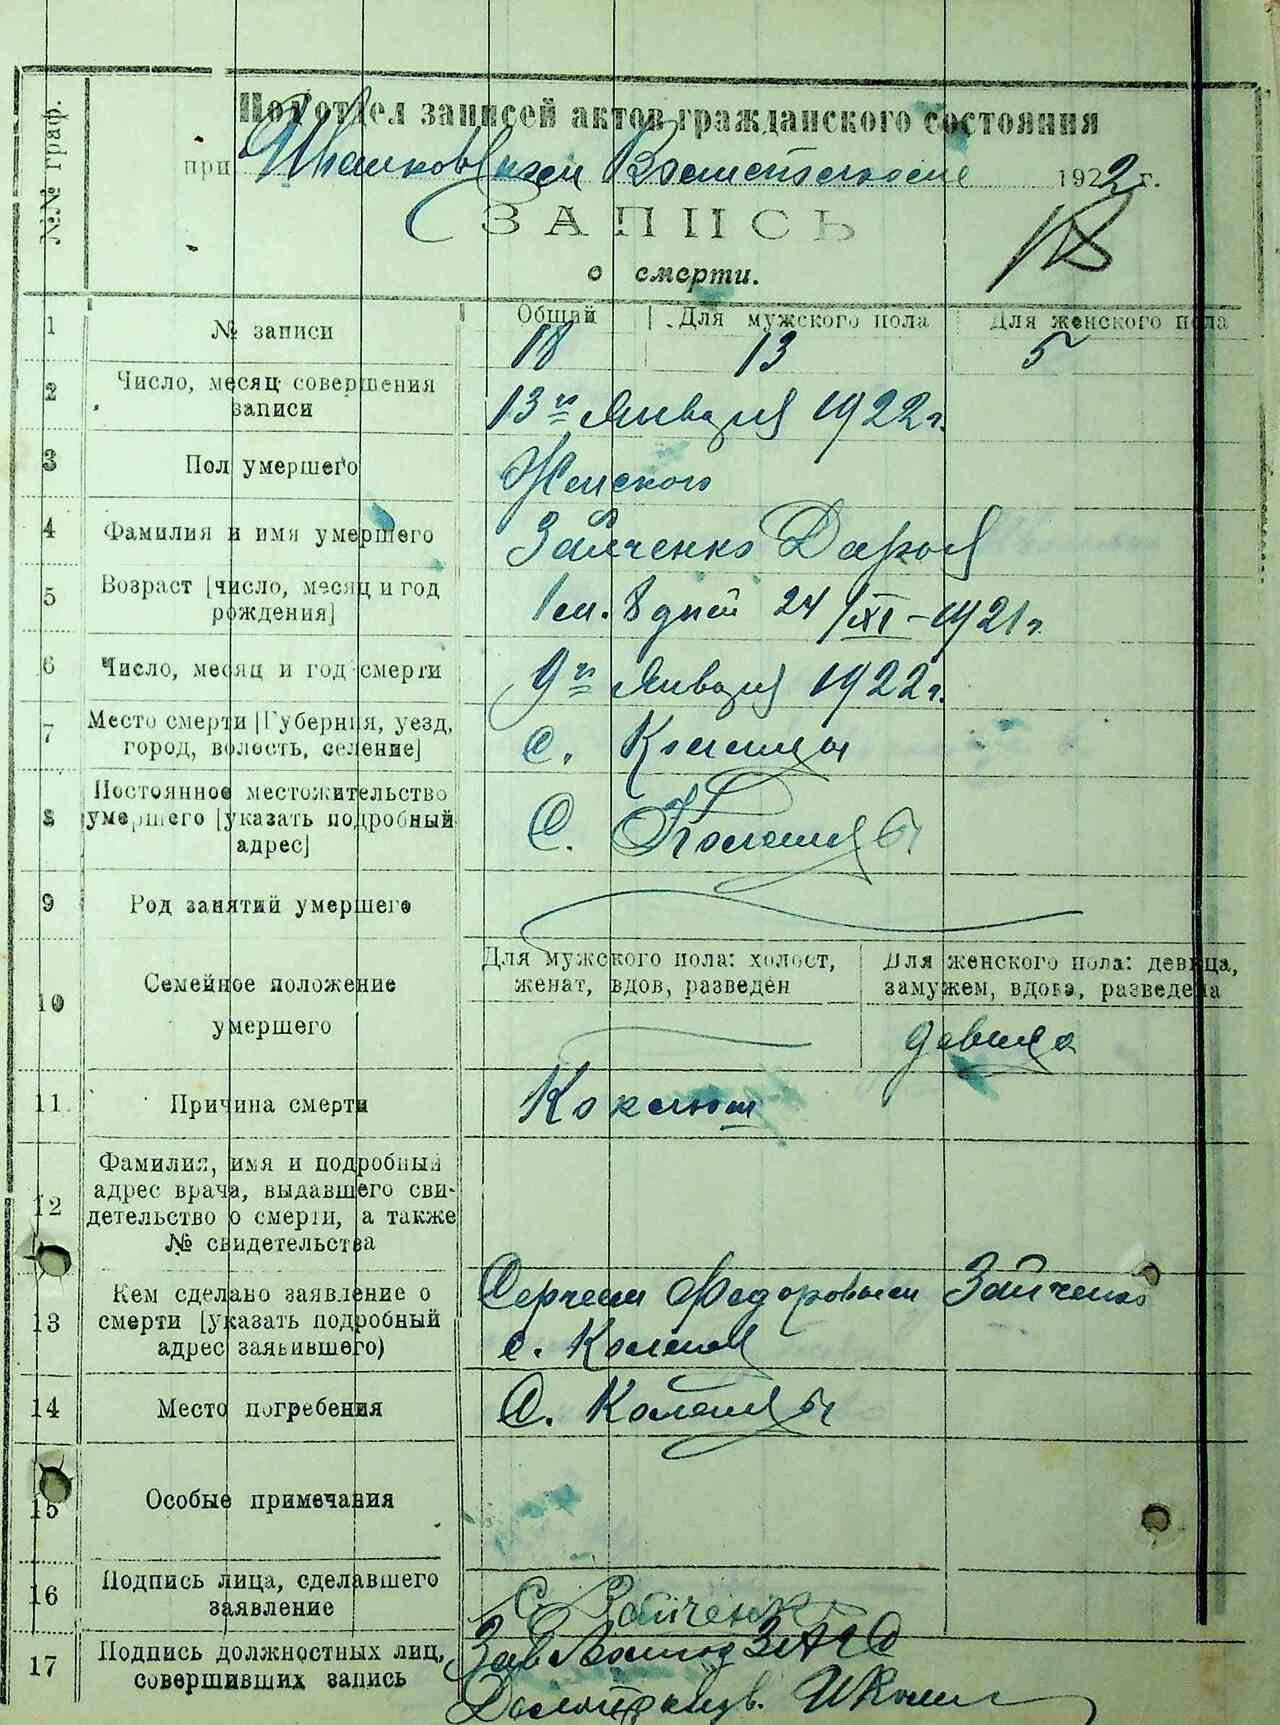 №№ граф.
Подотдел записей актов гражданского состояния
при 1922 г.
ЗАПИСЬ
о смерти.
18
1 № записи Общий Для мужского пола Для женского пола
18 13 5
2 Число, месяц совершения записи 13го Января 1922 г.
3 Пол умершего Женского
4 Фамилия и имя умершего Зайченко Дарья
5 Возраст [число, месяц и год рождения] 1 м. 8 дней 24/XI-1921 г.
6 Число, месяц и год смерти 9го Января 1922 г.
7 Место смерти [Губерния, уезд, город, волость, селение] с.
8 Постоянное местожительство умершего [указать подробный адрес] С.
9 Род занятий умершего
10 Семейное положение умершего
Для мужского пола: холост, женат, вдов, разведен
Для женского пола: девица, замужем, вдова, разведена
девица
11 Причина смерти Коклюш
12 Фамилия, имя и подробный адрес врача, выдавшего свидетельство о смерти, а также № свидетельства
13 Кем сделано заявление о смерти [указать подробный адрес заявившего) Сергеем Федоровым Зайченко
с.
14 Место погребения С.
15 Особые примечания
16 Подпись лица, сделавшего заявление С. Зайченко
17 Подпись должностных лиц, совершивших запись Зав. ЗАГС